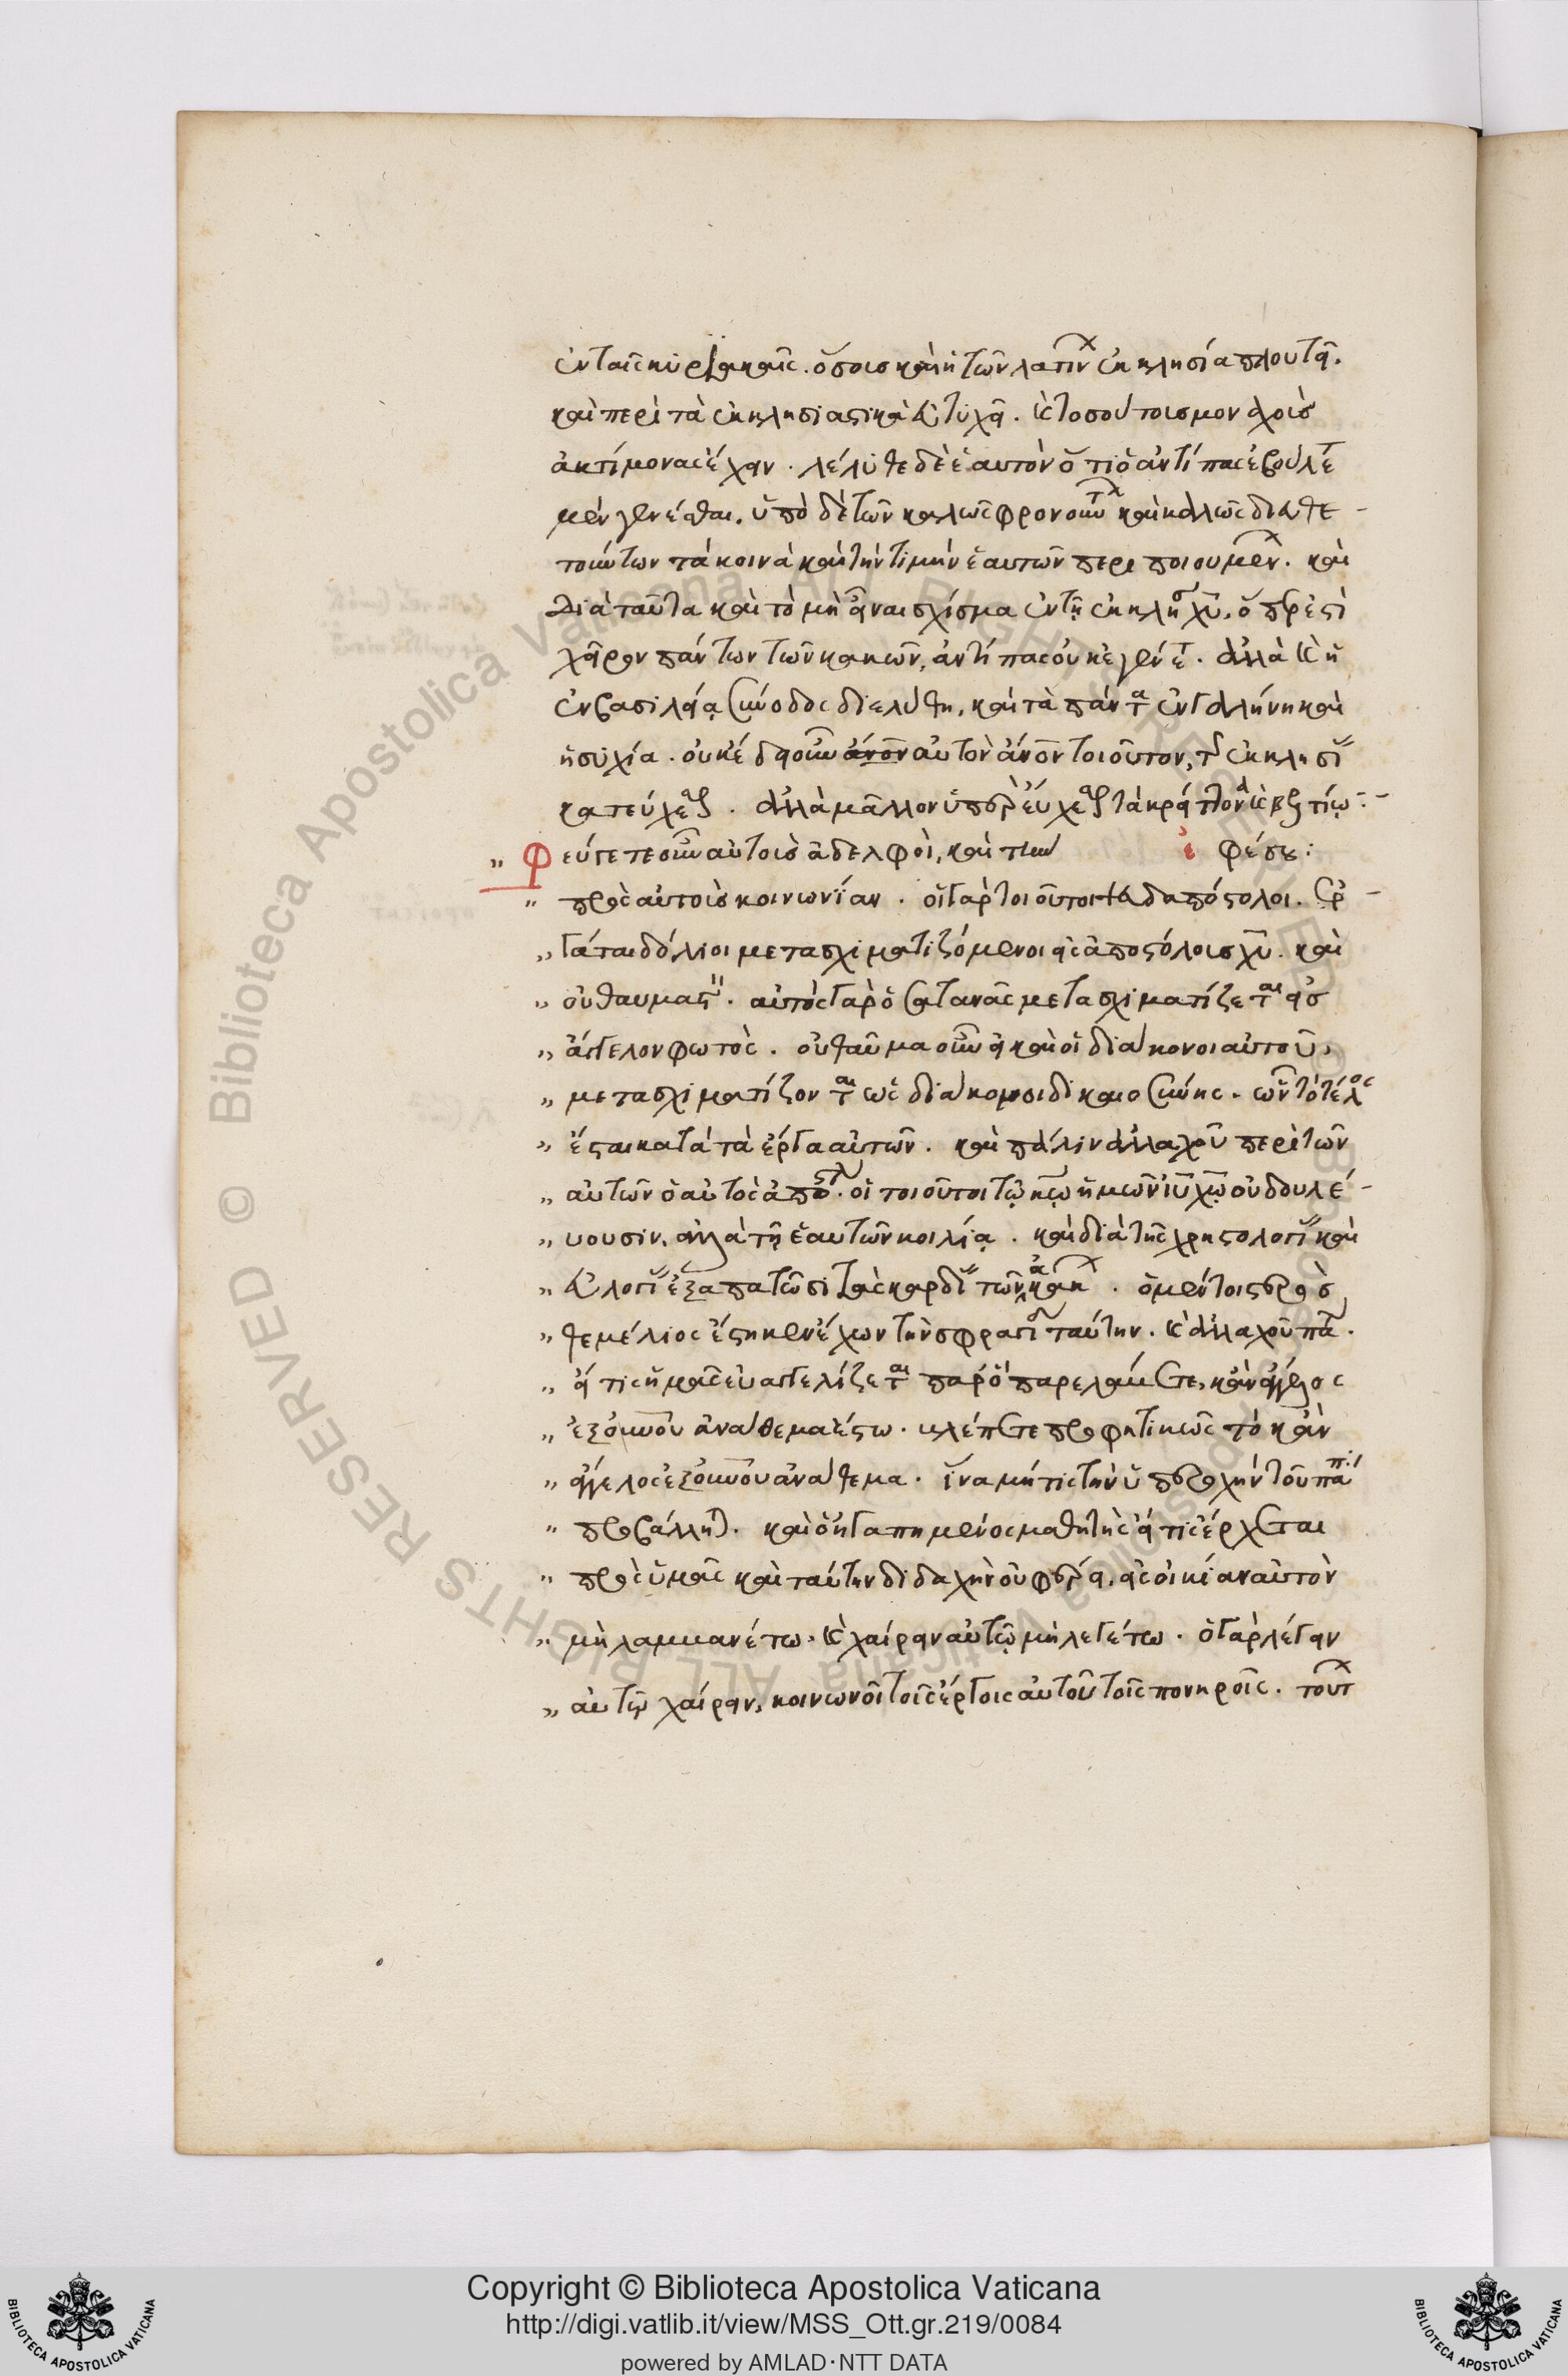 ἐν ταῖς κυριακαῖς. ὅσοις καὶ ἡ τῶν λατίν ἐκκλησία πλουτεῖ.
καὶ περὶ τὰ ἐκκλησιαστικὰ εὐτυχεῖ. καὶ τοσούτοις μοναχοὺς
ἀκτίμονας ἔχειν. λέλυθε δὲ ἑαυτὸν ὅτι ὁ ἀντίπας ἐβούλε
μὲν γενέσθαι. ὑπὸ δὲ τῶν καλῶς φρονούντ καὶ καλῶς διαθε-
τούντων τὰ κοινὰ καὶ τὴν τιμὴν ἑαυτῶν περιποιουμέν. καὶ
διὰ ταῦτα καὶ τὸ μὴ εἶναι σχίσμα ἐν τῇ ἐκκλησ χυ, ὅπερ ἐστὶ
χεῖρον πάντων τῶν κακῶν, ἀντίπας οὐκ ἐγένετ. ἀλλὰ καὶ ἡ
ἐν βασιλεία σύνοδος διελύθη, καὶ τὰ πάντα ἐν γαλήνη καὶ
ἡσυχία. οὐκ ἔδει οὖν αὐτὸν ἄνον τοιοῦτον, τῆς ἐκκλησί
κατεύχες. ἀλλὰ μᾶλλον ὑπερεύχες τὰ κρείττονα καὶ βελτίω:-
„ Φεύγετε οὖν αὐτοὺς ἀδελφοὶ, καὶ τὴν ἐφέσου:
„ πρὸς αὐτοὺς κοινωνίαν. οἱ γὰρ τοιοῦτοι ψευδαπόστολοι. ἐρ-
„ γάται δόλιοι μετασχιματιζόμενοι εἰς ἀποστόλους χυ. καὶ
„ οὐ θαυμαστ. αὐτὸς γὰρ ὁ σατανᾶς μετασχιματίζεται εἰς
„ ἄγγελον φωτός. οὐ θαῦμα οὖν εἰ καὶ οἱ διάκονοι αὐτοῦ,
„ μετασχιματίζονται ὡς διάκονοι δικαιοσύνης. ὧν τὸ τέλος
„ ἔσται κατὰ τὰ ἔργα αὐτῶν. καὶ πάλιν ἀλλαχοῦ περὶ τῶν
„ αὐτῶν ὁ αὐτὸς ἀπόστλ. οἱ τοιοῦτοι τῷ κω ἡμῶν ιυ χω οὐ δουλε-
„ ύουσιν. ἀλλὰ τῇ ἑαυτῶν κοιλίᾳ. καὶ διὰ τῆς χρηστολογί καὶ
„ εὐλογί ἐξαπατῶσι τὰς καρδί τῶν ἀκάκ. ὁ μέντοι στερεὸς
„ θεμέλιος ἔστηκεν ἔχων τὴν σφραγί ταύτην. καὶ ἀλλαχοῦ πα.
„ εἴ τις ὑμᾶς εὐαγγελίζεται παρ' ὃ παρελάβετε, κἂν ἄγγελος
„ ἐξ οὐνου ἀνάθεμα ἔστω. βλέπετε προφητικῶς τὸ κἂν
„ ἄγγελος ἐξ οὐνου ἀνάθεμα. ἵνα μή τις τὴν ὑπεροχὴν τοῦ πάπ
„ προβάλλητ. καὶ ὁ ἠγαπημένος μαθητὴς εἴ τις ἔρχεται
„ πρὸς ὑμᾶς καὶ ταύτην διδαχὴν οὐ φέρει. εἰς οἰκίαν αὐτὸν
„ μὴ λαμμανέτω. καὶ χαίρειν αὐτῷ μὴ λεγέτω. ὁ γὰρ λέγειν
„ αὐτῷ χαίρειν, κοινωνοῖ τοῖς ἔργοις αὐτοῦ τοῖς πονηροῖς. τούτ
Biblioteca Apostolica Vaticana ALL RIGHTS RESERVED ©
Copyright © Biblioteca Apostolica Vaticana
http://digi.vatlib.it/view/MSS_Ott.gr.219/0084
powered by AMLAD·NTT DATA
BIBLIOTECA APOSTOLICA VATICANA
BIBLIOTECA APOSTOLICA VATICANA